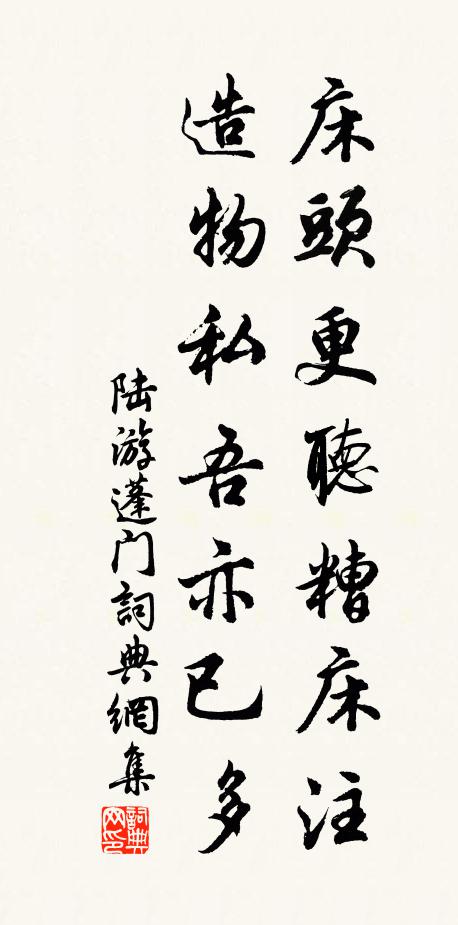 床頭更聽糟床注
造物私吾亦已多
陆游蓬门詞典網集
詞典
网印